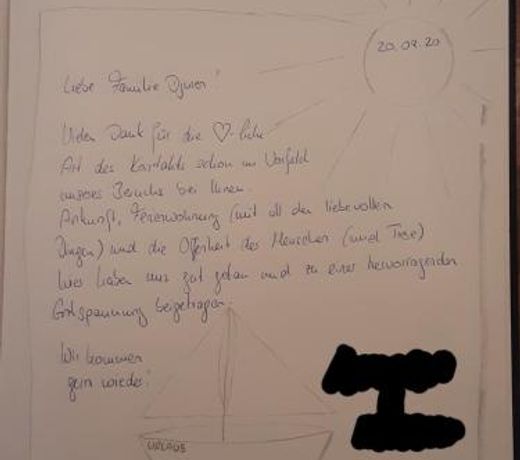 20.07.20
Liebe Familie
Vielen Dank für die ♡-liche
Art des Kontakts schon im Vorfeld
unseres Besuchs bei Ihnen.
Ankunft, Ferienwohnung (mit all den liebevollen
Dingen) und die Offenheit des Menschen (und Tiere)
hier haben uns gut getan und zu einer hervorragenden
Entspannung beigetragen.
Wir kommen
gern wieder!